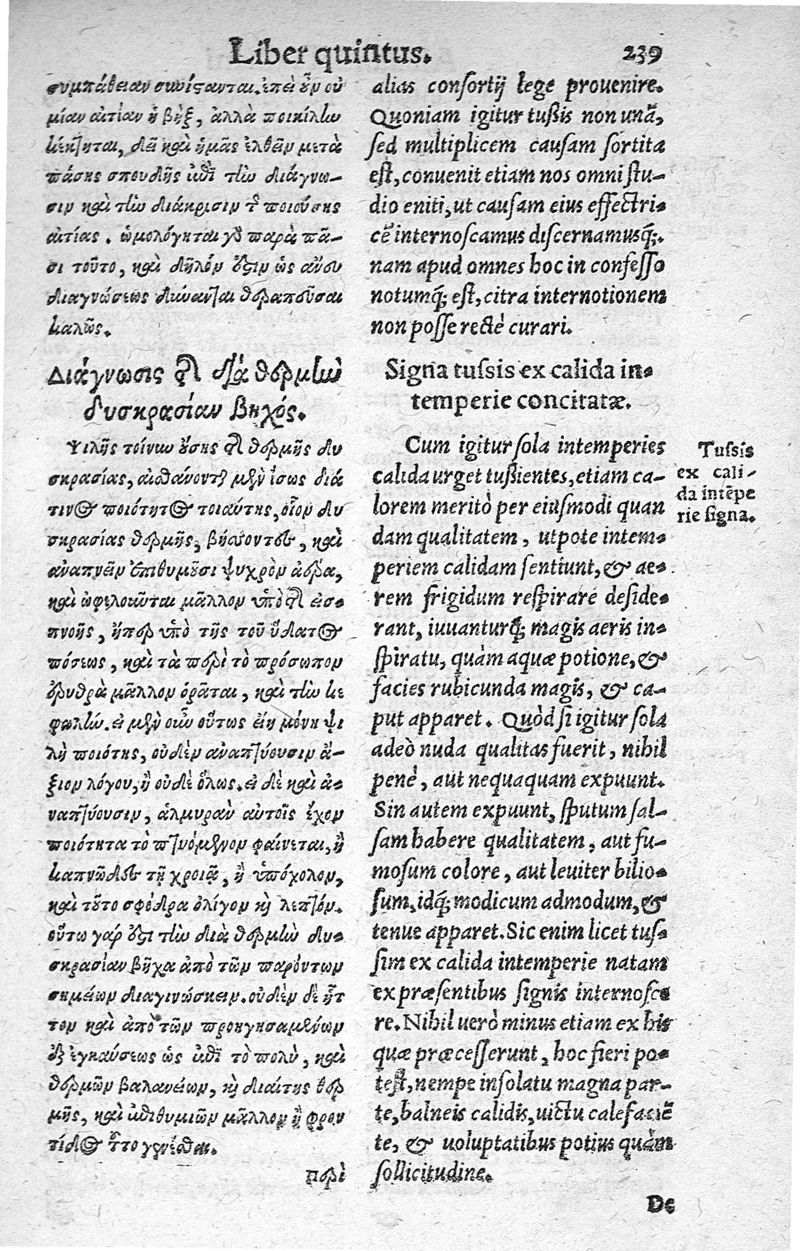 Liber quintus. 239
συμπάθειαν συνίστανται. ἐπεὶ οὖν οὐ
μίαν αἰτίαν ἡ βὴξ, ἀλλὰ ποικίλην
κέκτηται, δεῖ καὶ ἡμᾶς ἐλθεῖν μετὰ
πάσης σπουδῆς ἐπὶ τὴν διάγνω-
σιν καὶ τὴν διάκρισιν τῆς ποιούσης
αἰτίας. ὡμολόγηται γὰρ παρὰ πᾶ-
σι τοῦτο, καὶ δῆλόν ἐστιν ὡς ἄνευ
διαγνώσεως δύνανται θεραπεῦσαι
καλῶς.
Διάγνωσις τῆς διὰ θερμὴν
δυσκρασίαν βηχός.
Ψιλῆς τοίνυν οὔσης τῆς θερμῆς δυ
σκρασίας, αἰσθάνονται μὲν ἴσως διά
τινος ποιότητος τοιαύτης, οἷον δυ
σκρασίας θερμῆς, βήσσοντες, καὶ
ἀναπνεῖν ἐπιθυμοῦσι ψυχρὸν ἀέρα,
καὶ ὠφελοῦνται μᾶλλον ὑπὸ τῆς εἰσ-
πνοῆς, ἤπερ ὑπὸ τῆς τοῦ ὕδατος
πόσεως, καὶ τὰ περὶ τὸ πρόσωπον
ἐρυθρὰ μᾶλλον ὁρᾶται, καὶ τὴν κε
φαλήν. εἰ μὲν οὖν οὕτως εἴη μόνη ψι
λὴ ποιότης, οὐδὲν ἀναπτύουσιν ἄ-
ξιον λόγου, ἢ οὐδὲ ὅλως. εἰ δὲ καὶ ἀ-
ναπτύουσιν, ἁλμυρὰν αὐτοῖς ἔχον
ποιότητα τὸ πτυόμενον φαίνεται, ἢ
καπνῶδες τῇ χροιᾷ, ἢ ὑπόχολον,
καὶ τοῦτο σφόδρα ὀλίγον καὶ λεπτόν.
οὕτω γάρ ἐστι τὴν διὰ θερμὴν δυ-
σκρασίαν βῆχα ἀπὸ τῶν παρόντων
σημείων διαγινώσκειν. οὐδὲν δὲ ἧτ
τον καὶ ἀπὸ τῶν προηγησαμένων
ἐξ ἐγκαύσεως ὡς ἐπὶ τὸ πολὺ, καὶ
θερμῶν βαλανείων, καὶ διαίτης θερ
μῆς, καὶ ἐπιθυμιῶν μᾶλλον ἢ φρον
τίδος τοῦτο γενέσθαι.
περὶ
alias consortij lege prouenire.
Quoniam igitur tussis non unã,
sed multiplicem causam sortita
est, conuenit etiam nos omni stu-
dio eniti, ut causam eius effectri-
cẽ internoscamus discernamusq́;.
nam apud omnes hoc in confesso
notumq́; est, citra internotionem
non posse rectè curari.
Signa tussis ex calida in-
temperie concitatæ.
Cum igitur sola intemperies
calida urget tussientes, etiam ca-
lorem meritò per eiusmodi quan
dam qualitatem, utpote intem-
periem calidam sentiunt, & ae-
rem frigidum respirare deside-
rant, iuuanturq́; magis aeris in-
spiratu, quàm aquæ potione, &
facies rubicunda magis, & ca-
put apparet. Quòd si igitur sola
adeò nuda qualitas fuerit, nihil
penè, aut nequaquam expuunt.
Sin autem expuunt, sputum sal-
sam habere qualitatem, aut fu-
mosum colore, aut leuiter bilio-
sum, idq́; modicum admodum, &
tenue apparet. Sic enim licet tus-
sim ex calida intemperie natam
ex præsentibus signis internosce
re. Nihil uerò minus etiam ex his
quæ præcesserunt, hoc fieri po-
test, nempe insolatu magna par-
te, balneis calidis, uictu calefaciẽ
te, & uoluptatibus potius quàm
sollicitudine.
De
Tussis
ex cali-
da intẽpe
rie signa.